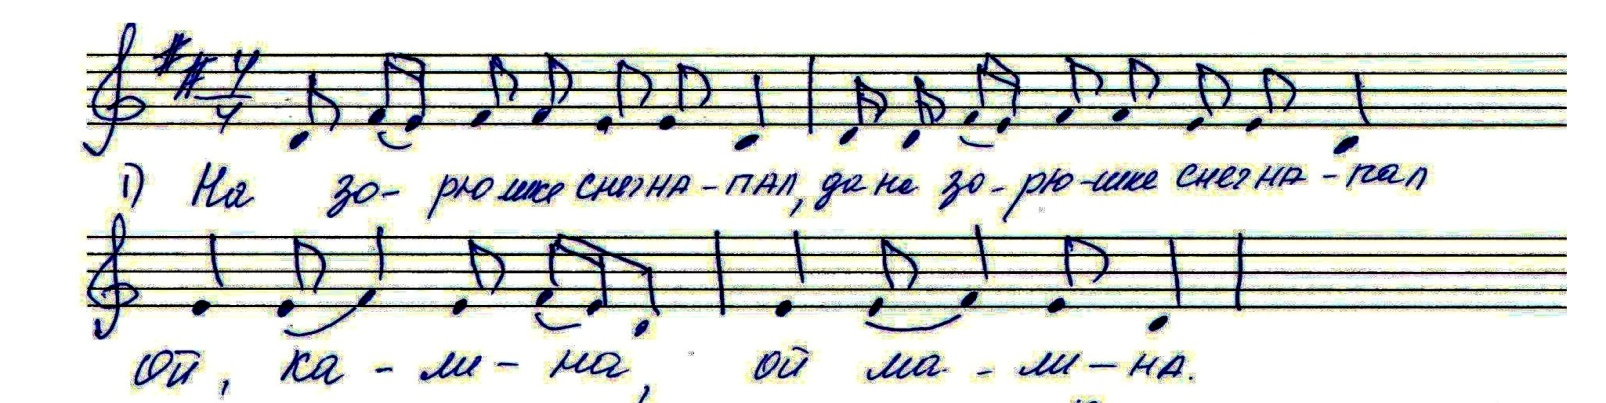 4/4
1) На зо- рюшке снег на-пал, да на зо-рю-шке снег на-пал
Ой, ка - ли - на, ой ма - ли - на.